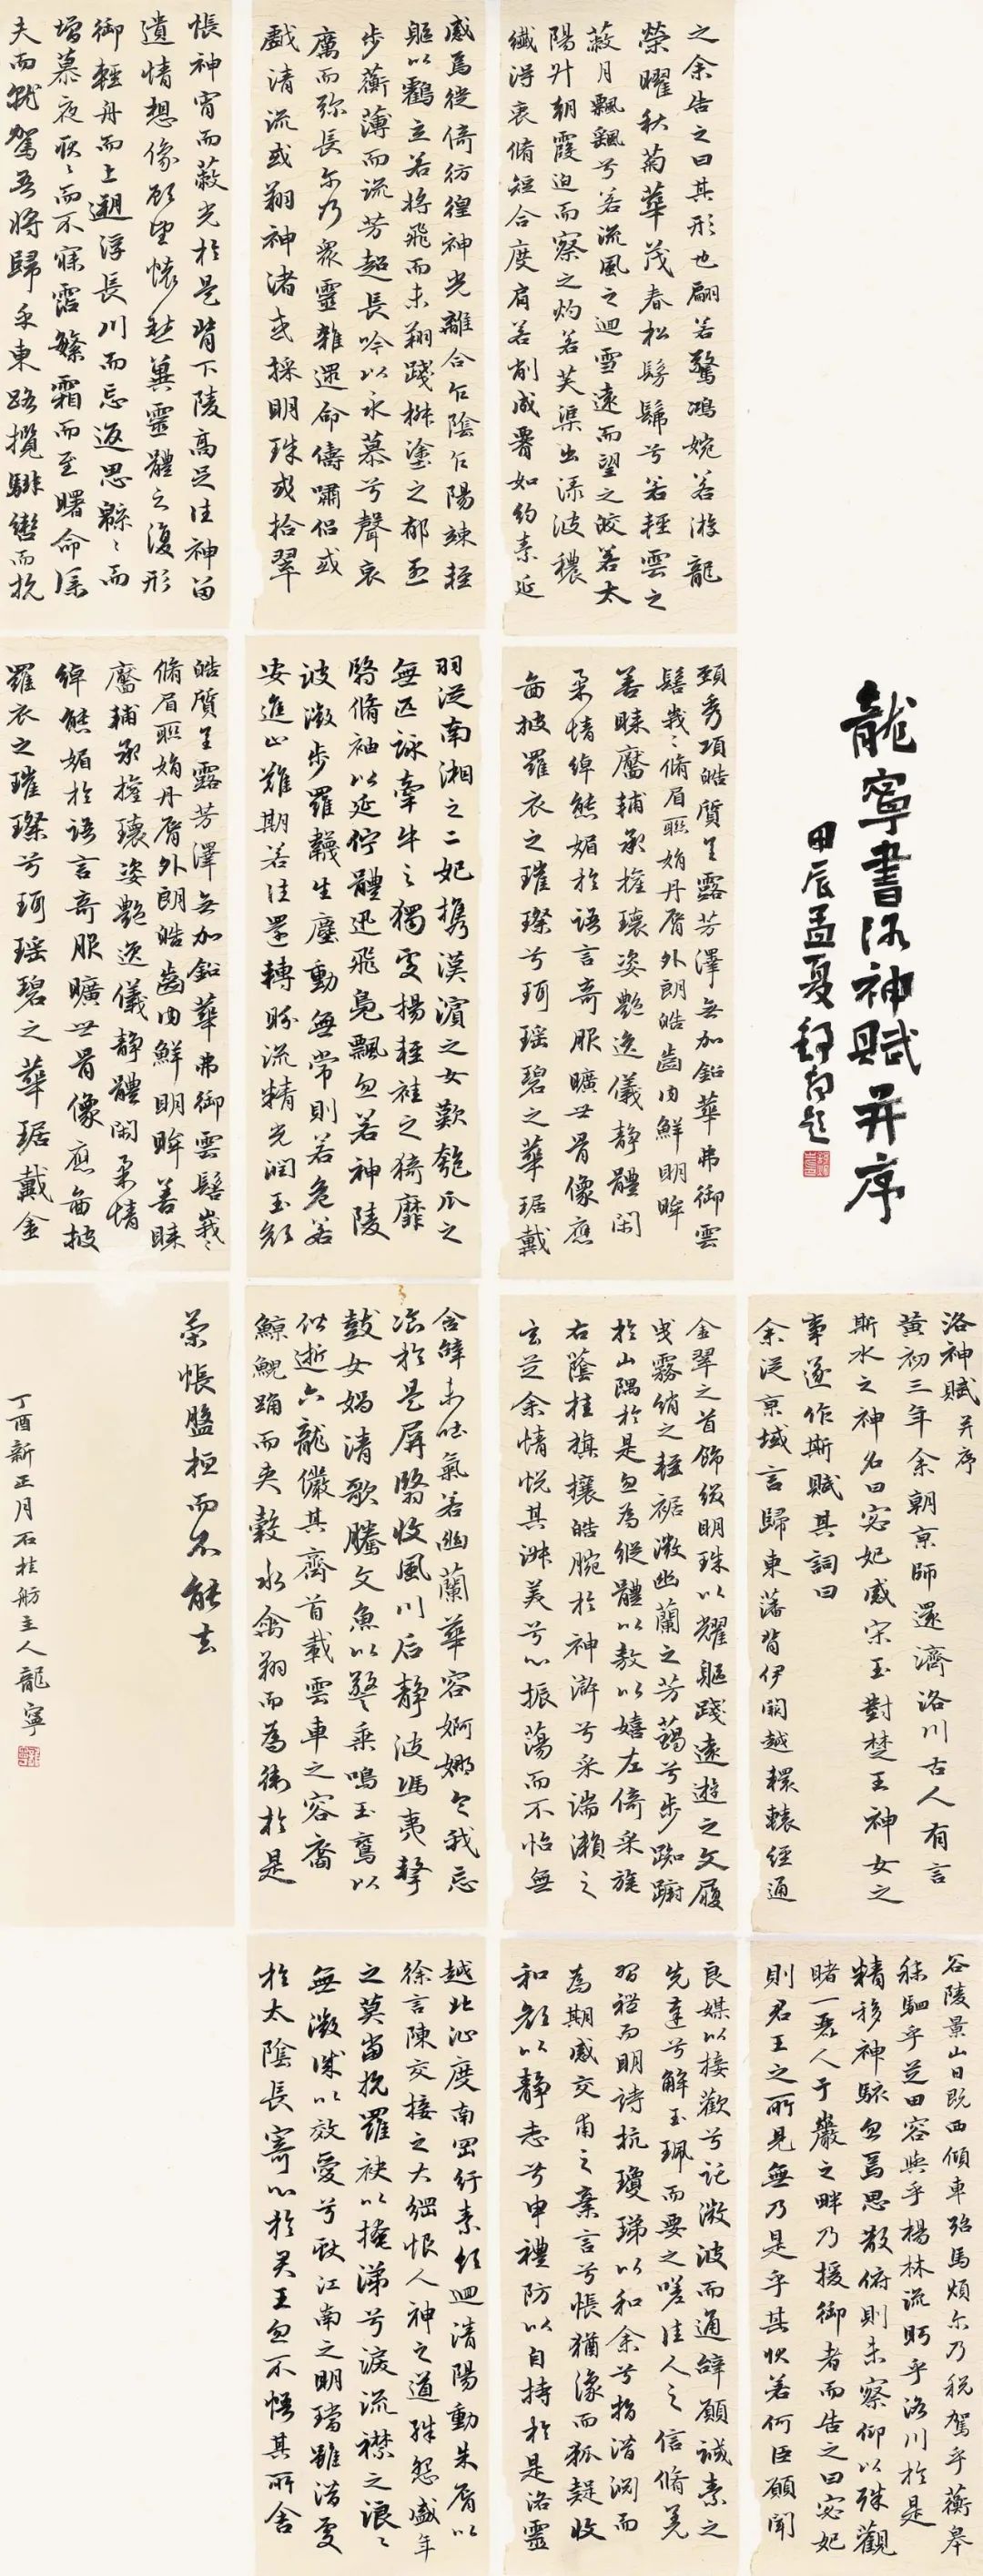 龍寧書洛神賦并序
甲辰孟夏
洛神賦并序
黃初三年余朝京師還濟洛川古人有言
斯水之神名曰宓妃感宋玉對楚王神女之
事遂作斯賦其詞曰
余從京域言歸東藩背伊闕越轘轅經通
谷陵景山日既西傾車殆馬煩尔乃稅駕乎蘅皋
秣駟乎芝田容與乎楊林流眄乎洛川於是
精移神駭忽焉思散俯則未察仰以殊觀
睹一麗人于巖之畔乃援御者而告之曰宓妃
則君王之所見無乃是乎其狀若何臣願聞
之余告之曰其形也翩若驚鴻婉若游龍
榮曜秋菊華茂春松髣髴兮若輕雲之
蔽月飄颻兮若流風之迴雪遠而望之皎若太
陽升朝霞迫而察之灼若芙渠出淥波穠
纖得衷脩短合度肩若削成腰如約素延
頸秀項皓質呈露芳澤無加鉛華弗御雲
髻峩〻脩眉聯娟丹脣外朗皓齒內鮮明眸
善睞靨輔承權瓌姿艷逸儀靜體閑
柔情綽態媚於語言奇服曠世骨像應
圖披羅衣之璀璨兮珥瑤碧之華琚戴
金翠之首飾綴明珠以耀軀踐遠遊之文履
曳霧綃之輕裾微幽蘭之芳藹兮步踟躕
於山隅於是忽焉縱體以敖以嬉左倚采旄
右蔭桂旗攘皓腕於神滸兮采湍瀨之
玄芝余情悅其淑美兮心振蕩而不怡無
良媒以接歡兮託微波而通辭願誠素之
先達兮解玉珮而要之嗟佳人之信脩羌
習禮而明詩抗瓊珶以和余兮指潛淵而
為期感交甫之棄言兮悵猶豫而狐疑收
和顏以靜志兮申禮防以自持於是洛靈
感焉徙倚彷徨神光離合乍陰乍陽竦輕
軀以鶴立若將飛而未翔踐椒塗之郁烈
步蘅薄而流芳超長吟以永慕兮聲哀
厲而弥長尔乃眾靈雜遝命儔嘯侶或
戲清流或翔神渚或採明珠或拾翠
羽從南湘之二妃攜漢濱之女歎匏瓜之
無匹詠牽牛之獨處揚輕袿之猗靡
翳脩袖以延佇體迅飛鳧飄忽若神陵
波微步羅韈生塵動無常則若危若
安進止難期若往若還轉眄流精光潤玉顏
含辭未吐氣若幽蘭華容婀娜令我忘
飡於是屏翳收風川后靜波馮夷擊
鼓女媧清歌騰文魚以警乘鳴玉鸞以
偕逝六龍儼其齊首載雲車之容裔
鯨鯢踊而夾轂水禽翔而為衛於是
越北沚度南岡紆素領迴清陽動朱脣以
徐言陳交接之大綱恨人神之道殊怨盛年
之莫當抗羅袂以掩涕兮淚流襟之浪〻
無微誠以效愛兮獻江南之明璫雖潛處
於太陰長寄心於君王忽不悟其所舍
悵神宵而蔽光於是背下陵高足往神留
遺情想像顧望懷愁冀靈體之復形
御輕舟而上遡浮長川而忘返思緜〻而
增慕夜耿〻而不寐霑繁霜而至曙命僕
夫而就駕吾將歸乎東路攬騑轡而抗
皓質呈露芳澤無加鉛華弗御雲髻峩〻
脩眉聯娟丹脣外朗皓齒內鮮明眸善睞
靨輔承權瓌姿艷逸儀靜體閑柔情
綽態媚於語言奇服曠世骨像應圖披
羅衣之璀璨兮珥瑤碧之華琚戴金
策悵盤桓而不能去
丁酉新正月石桂舫主人龍寧